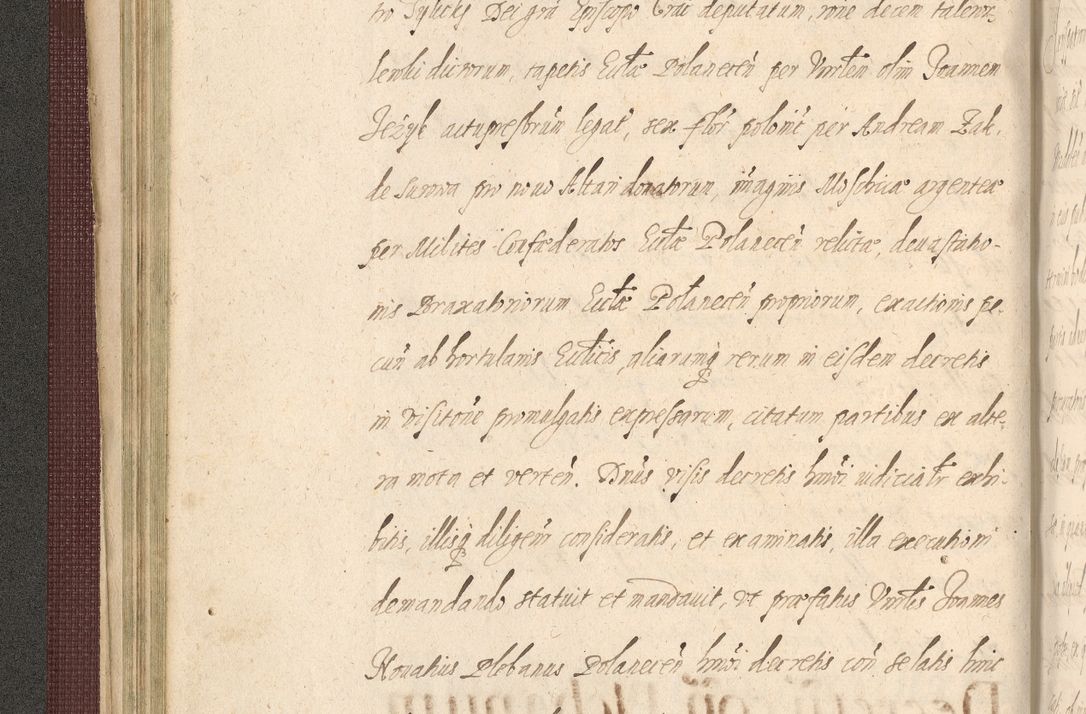 tro Tylicki Dei grã Episcopo Crac deputatum, nne decem talenti
lendu dictorum, tapetis Ecclæ Polanecen̄ per Vnrblem olim Joannem
Jeżyk actu presbrum legat, sex flor polonic per Andream Zak.
de Surowa pro nouo Altari donatorum, imaginis Moschicæ argenteæ
per Milites Confœderatos Ecclæ Polanecen̄ relictæ, deuastatio-
nis Braxatoriorum Ecclæ Polanecen̄ propriorum, exactionis pe-
cun̄ ab hortulanis Ecclicis, aliarumq rerum in eisdem decretis
in visitone promulgatis expressarum, citatum partibus ex alte,
ra mota et verten̄. Dn̄us visis decretis hmoi iudicialr exhi-
bitis, illisq diligenr consideratis, et examinatis, illa executioni
demandando statuit et mandauit, vt præfatus Vnrblis Joannes
Nouatius Plebanus Polanecen̄ hmoi decretis con̄ se latis hinc